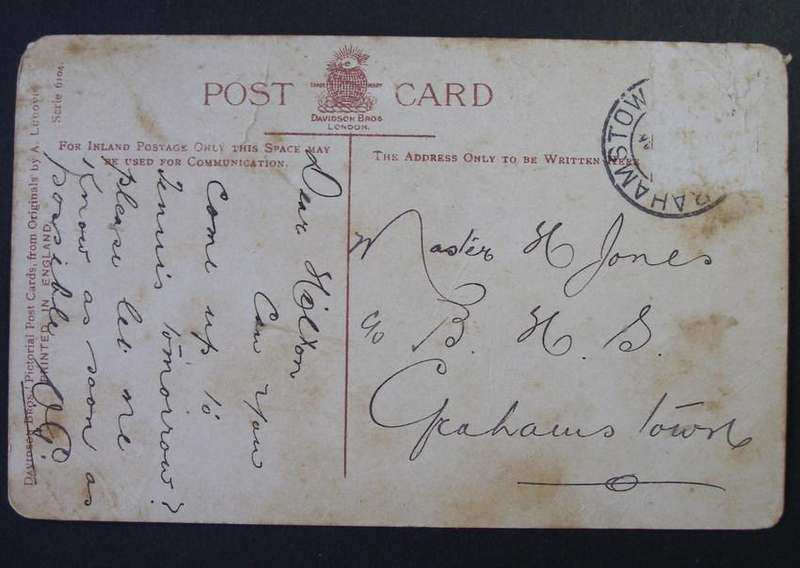 POST CARD
TRADE MARK
DAVIDSON BROS
LONDON.
FOR INLAND POSTAGE ONLY THIS SPACE MAY
BE USED FOR COMMUNICATION.
THE ADDRESS ONLY TO BE WRITTEN HERE
RAHAMSTOW
Dear Hilton
Can you
come up to
tennis tomorrow?
please let me
know as soon as
possible
Master H Jones
c/o B. H. S.
Grahamstown
DAVIDSON BROS.' Pictorial Post Cards, from Originals by A. Ludovici
Serie 6104.
PRINTED IN ENGLAND